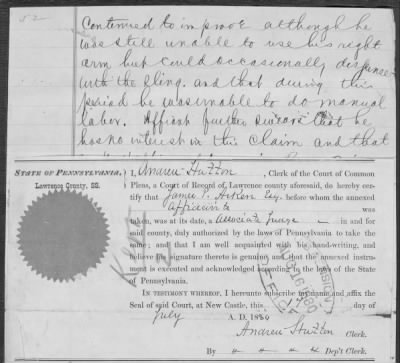 52
Continued to improve although he
was still unable to use his right
arm but could occasionally dispense
with the sling. and that during this
period he was unable to do manual
labor. Affiant further swears that he
has no interest in this claim and that
STATE OF PENNSYLVANIA,
Lawrence County, SS.
I, Andrew Hutton, Clerk of the Court of Common
Pleas, a Court of Record, of Lawrence county aforesaid, do hereby certify
that James P. Aiken Esq. before whom the annexed
Affidavit was
taken, was at its date, a Associate Judge in and for
said county, duly authorized by the laws of Pennsylvania to take the
same; and that I am well acquainted with his hand-writing, and
believe his signature thereto is genuine, and that the annexed instru-
ment is executed and acknowledged according to the laws of the State
of Pennsylvania.
IN TESTIMONY WHEREOF, I hereunto subscribe my name and affix the
Seal of said Court, at New Castle, this day of
July A. D. 1880
Andrew Hutton Clerk.
By Dep't Clerk.